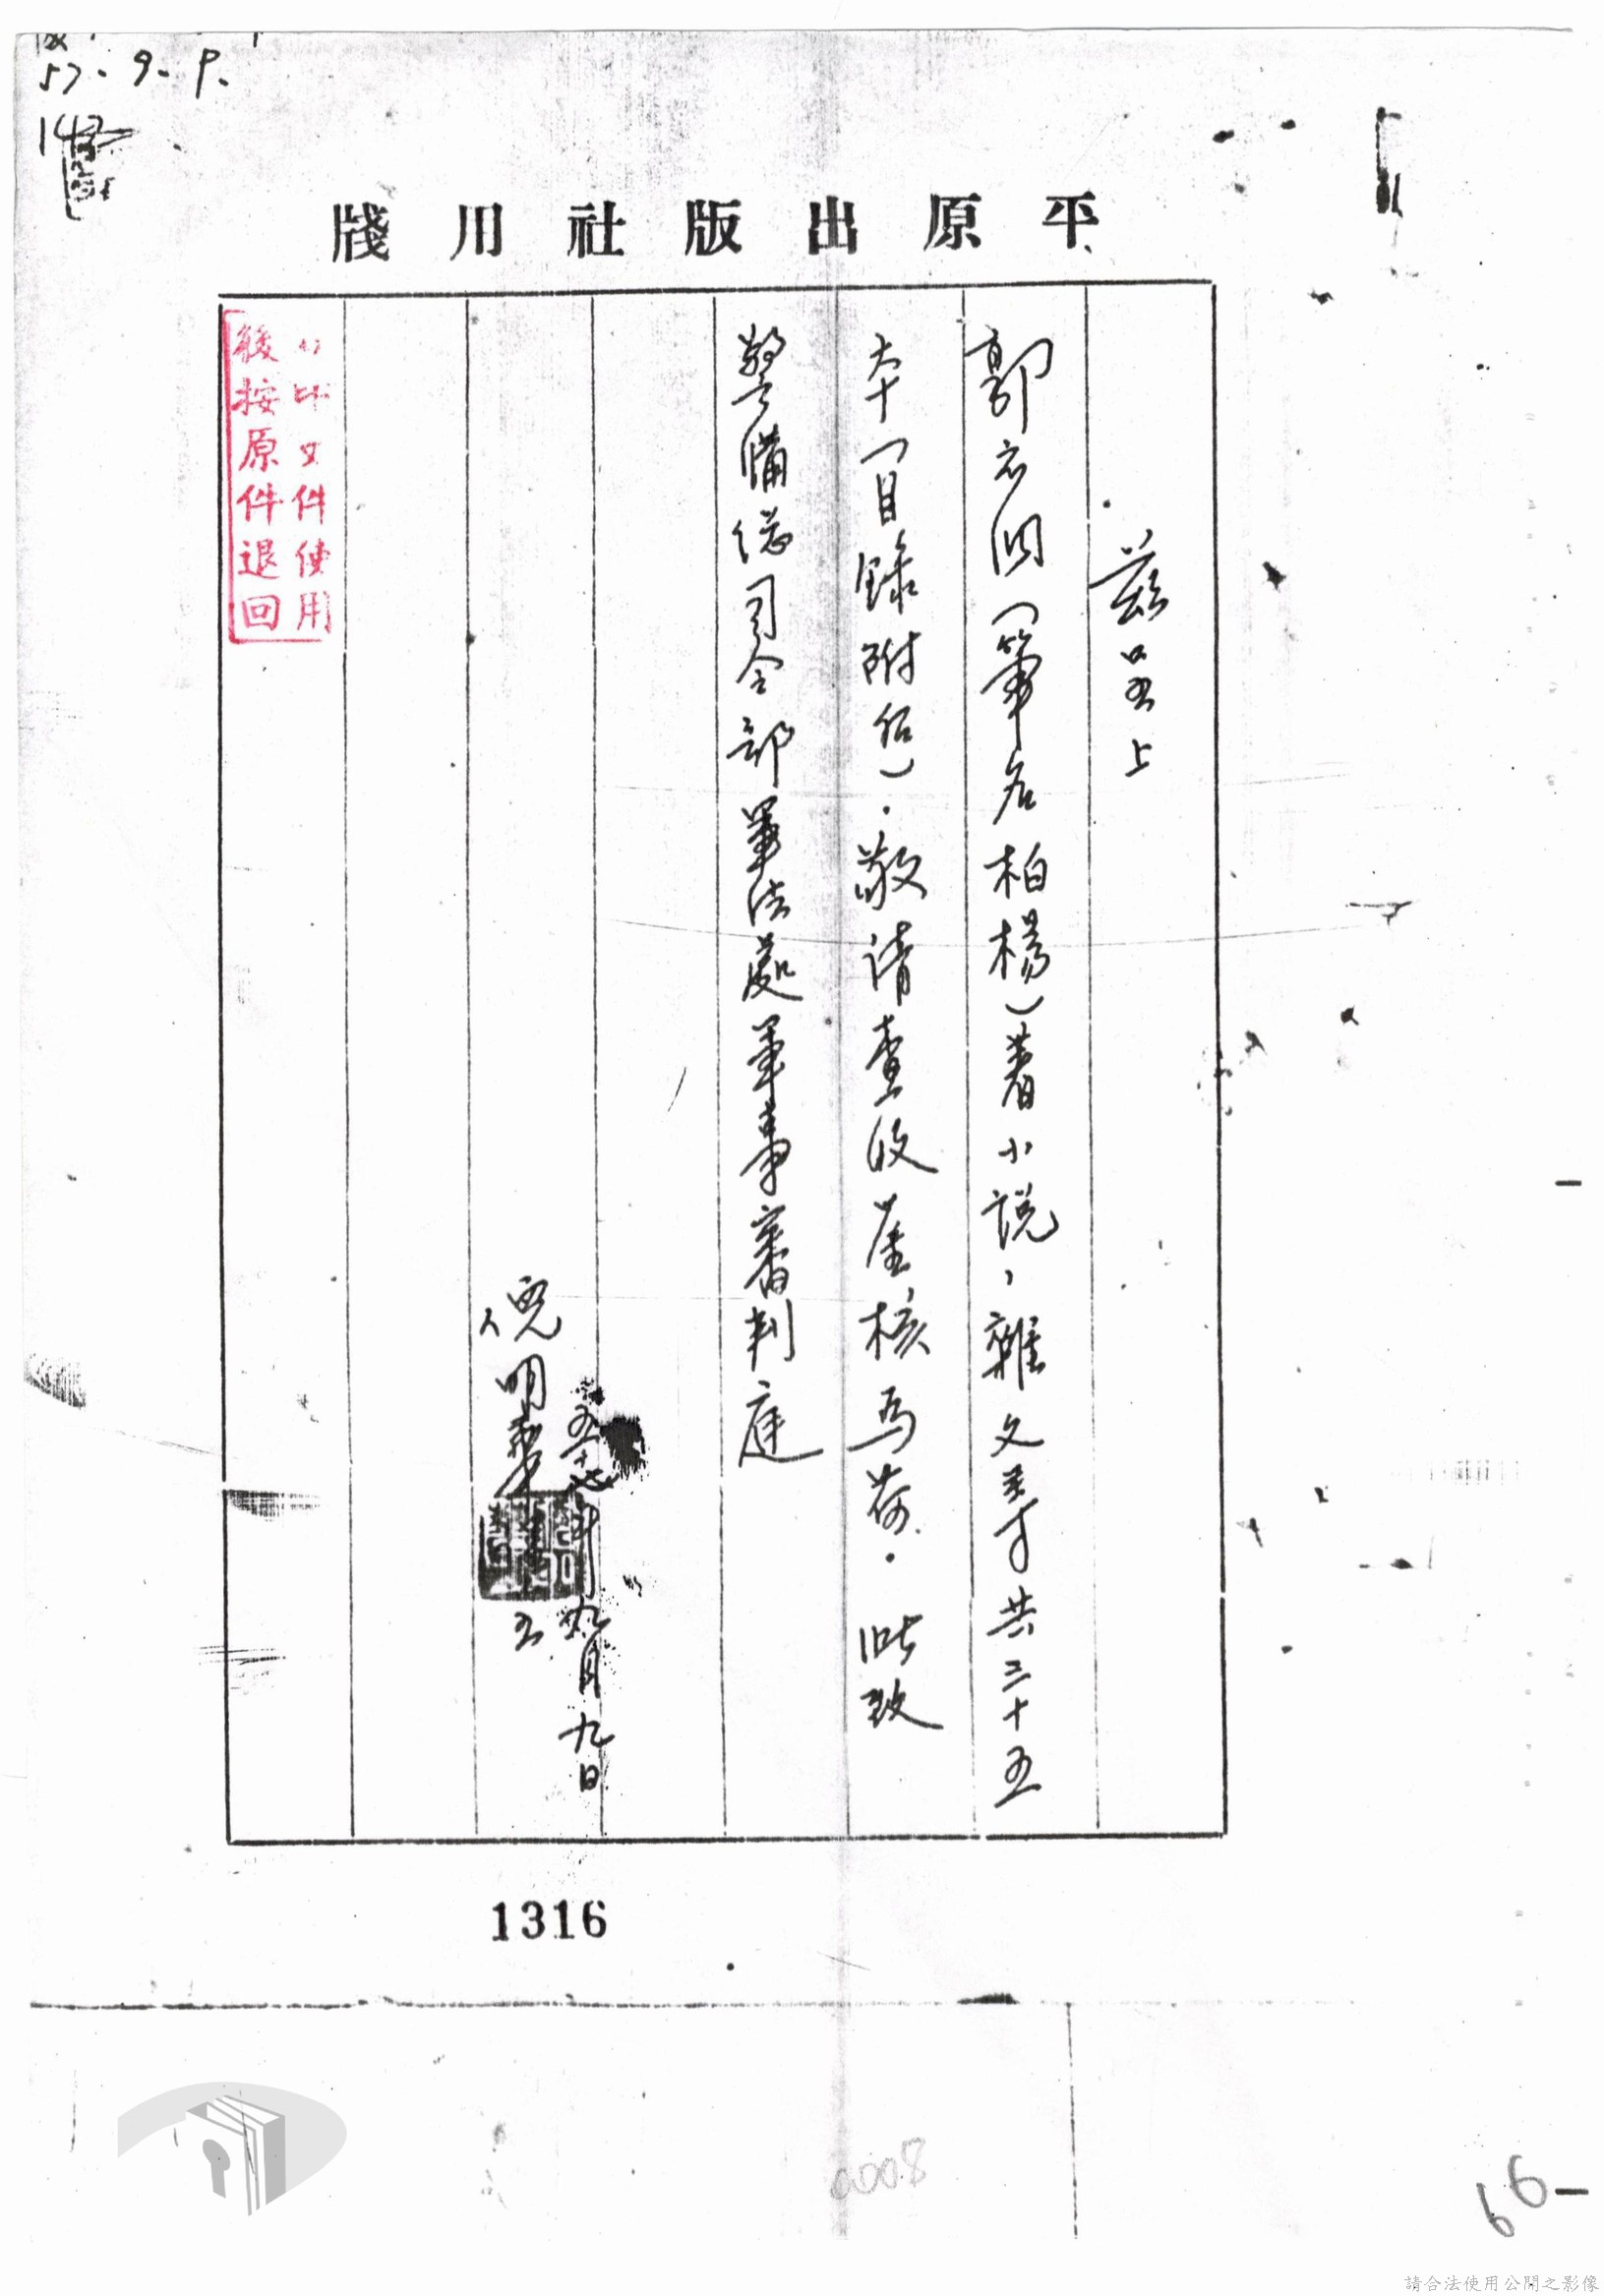 57.9.9.
平原出版社用牋
茲呈上
郭衣洞（筆名柏楊）著小說，雜文等共三十五
本（目錄附后）．敬請查收鑒核為荷．此致
警備總司令部軍法處軍事審判庭
五十七年九月九日
倪明華 上
文件使用
後按原件退回
1316
0008
66
請合法使用公開之影像